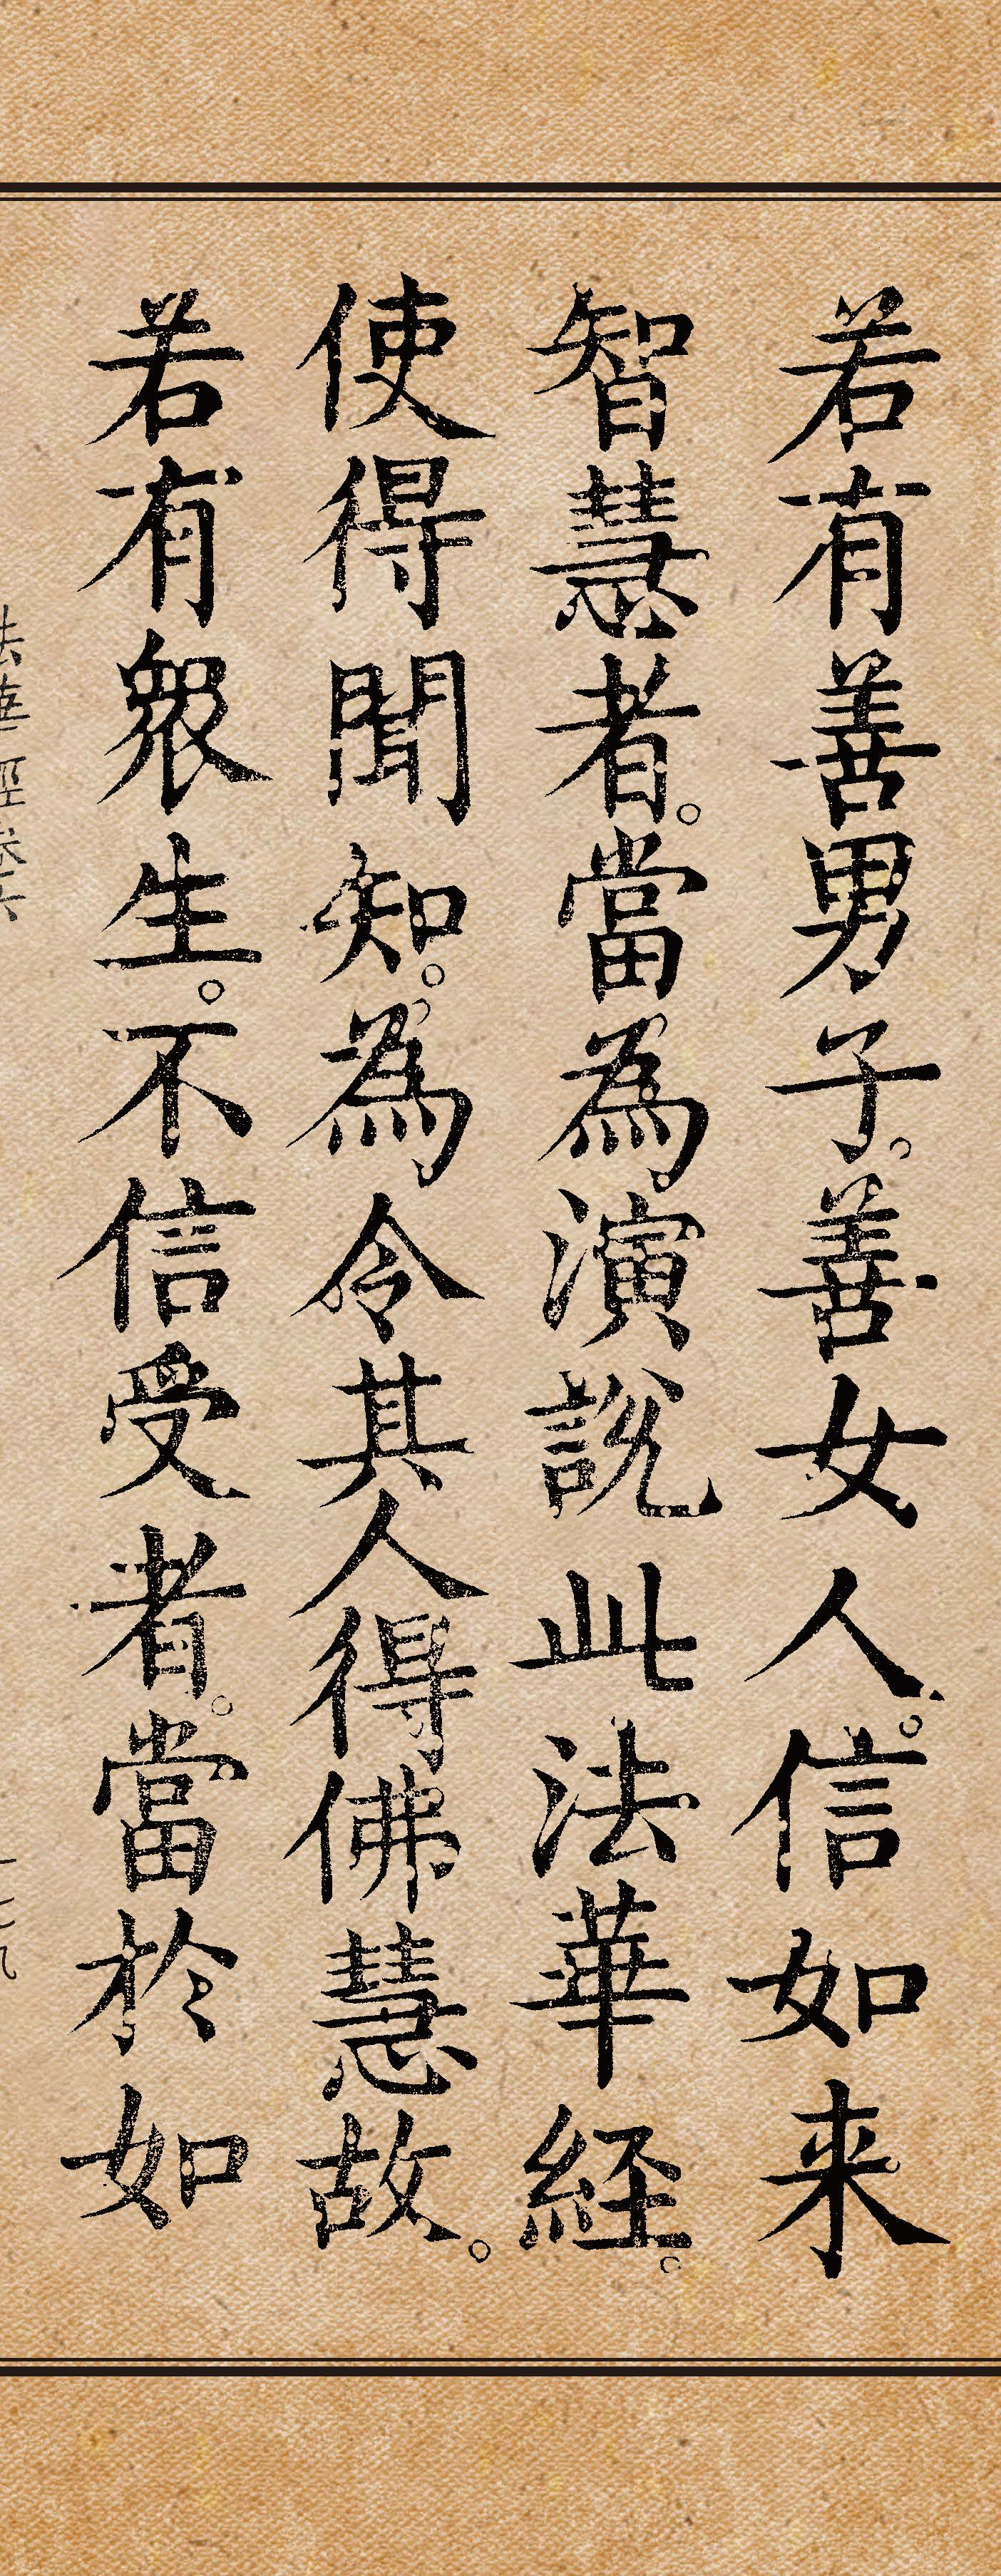 若有善男子。善女人。信如来
智慧者。當為演說此法華経。
使得聞知。為令其人得佛慧故。
若有眾生。不信受者。當於如